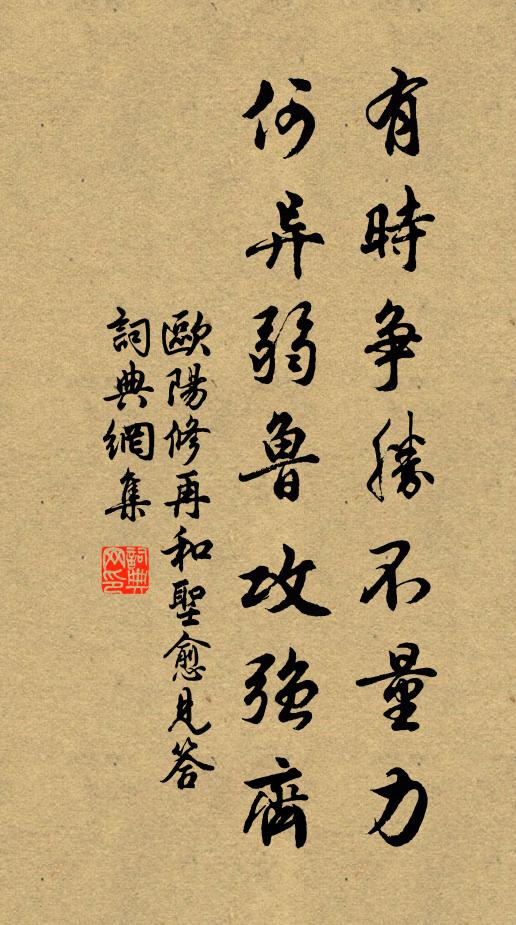 有時爭勝不量力
何異弱魯攻強齊
歐陽修再和聖愈見答
詞典網集
詞典网印